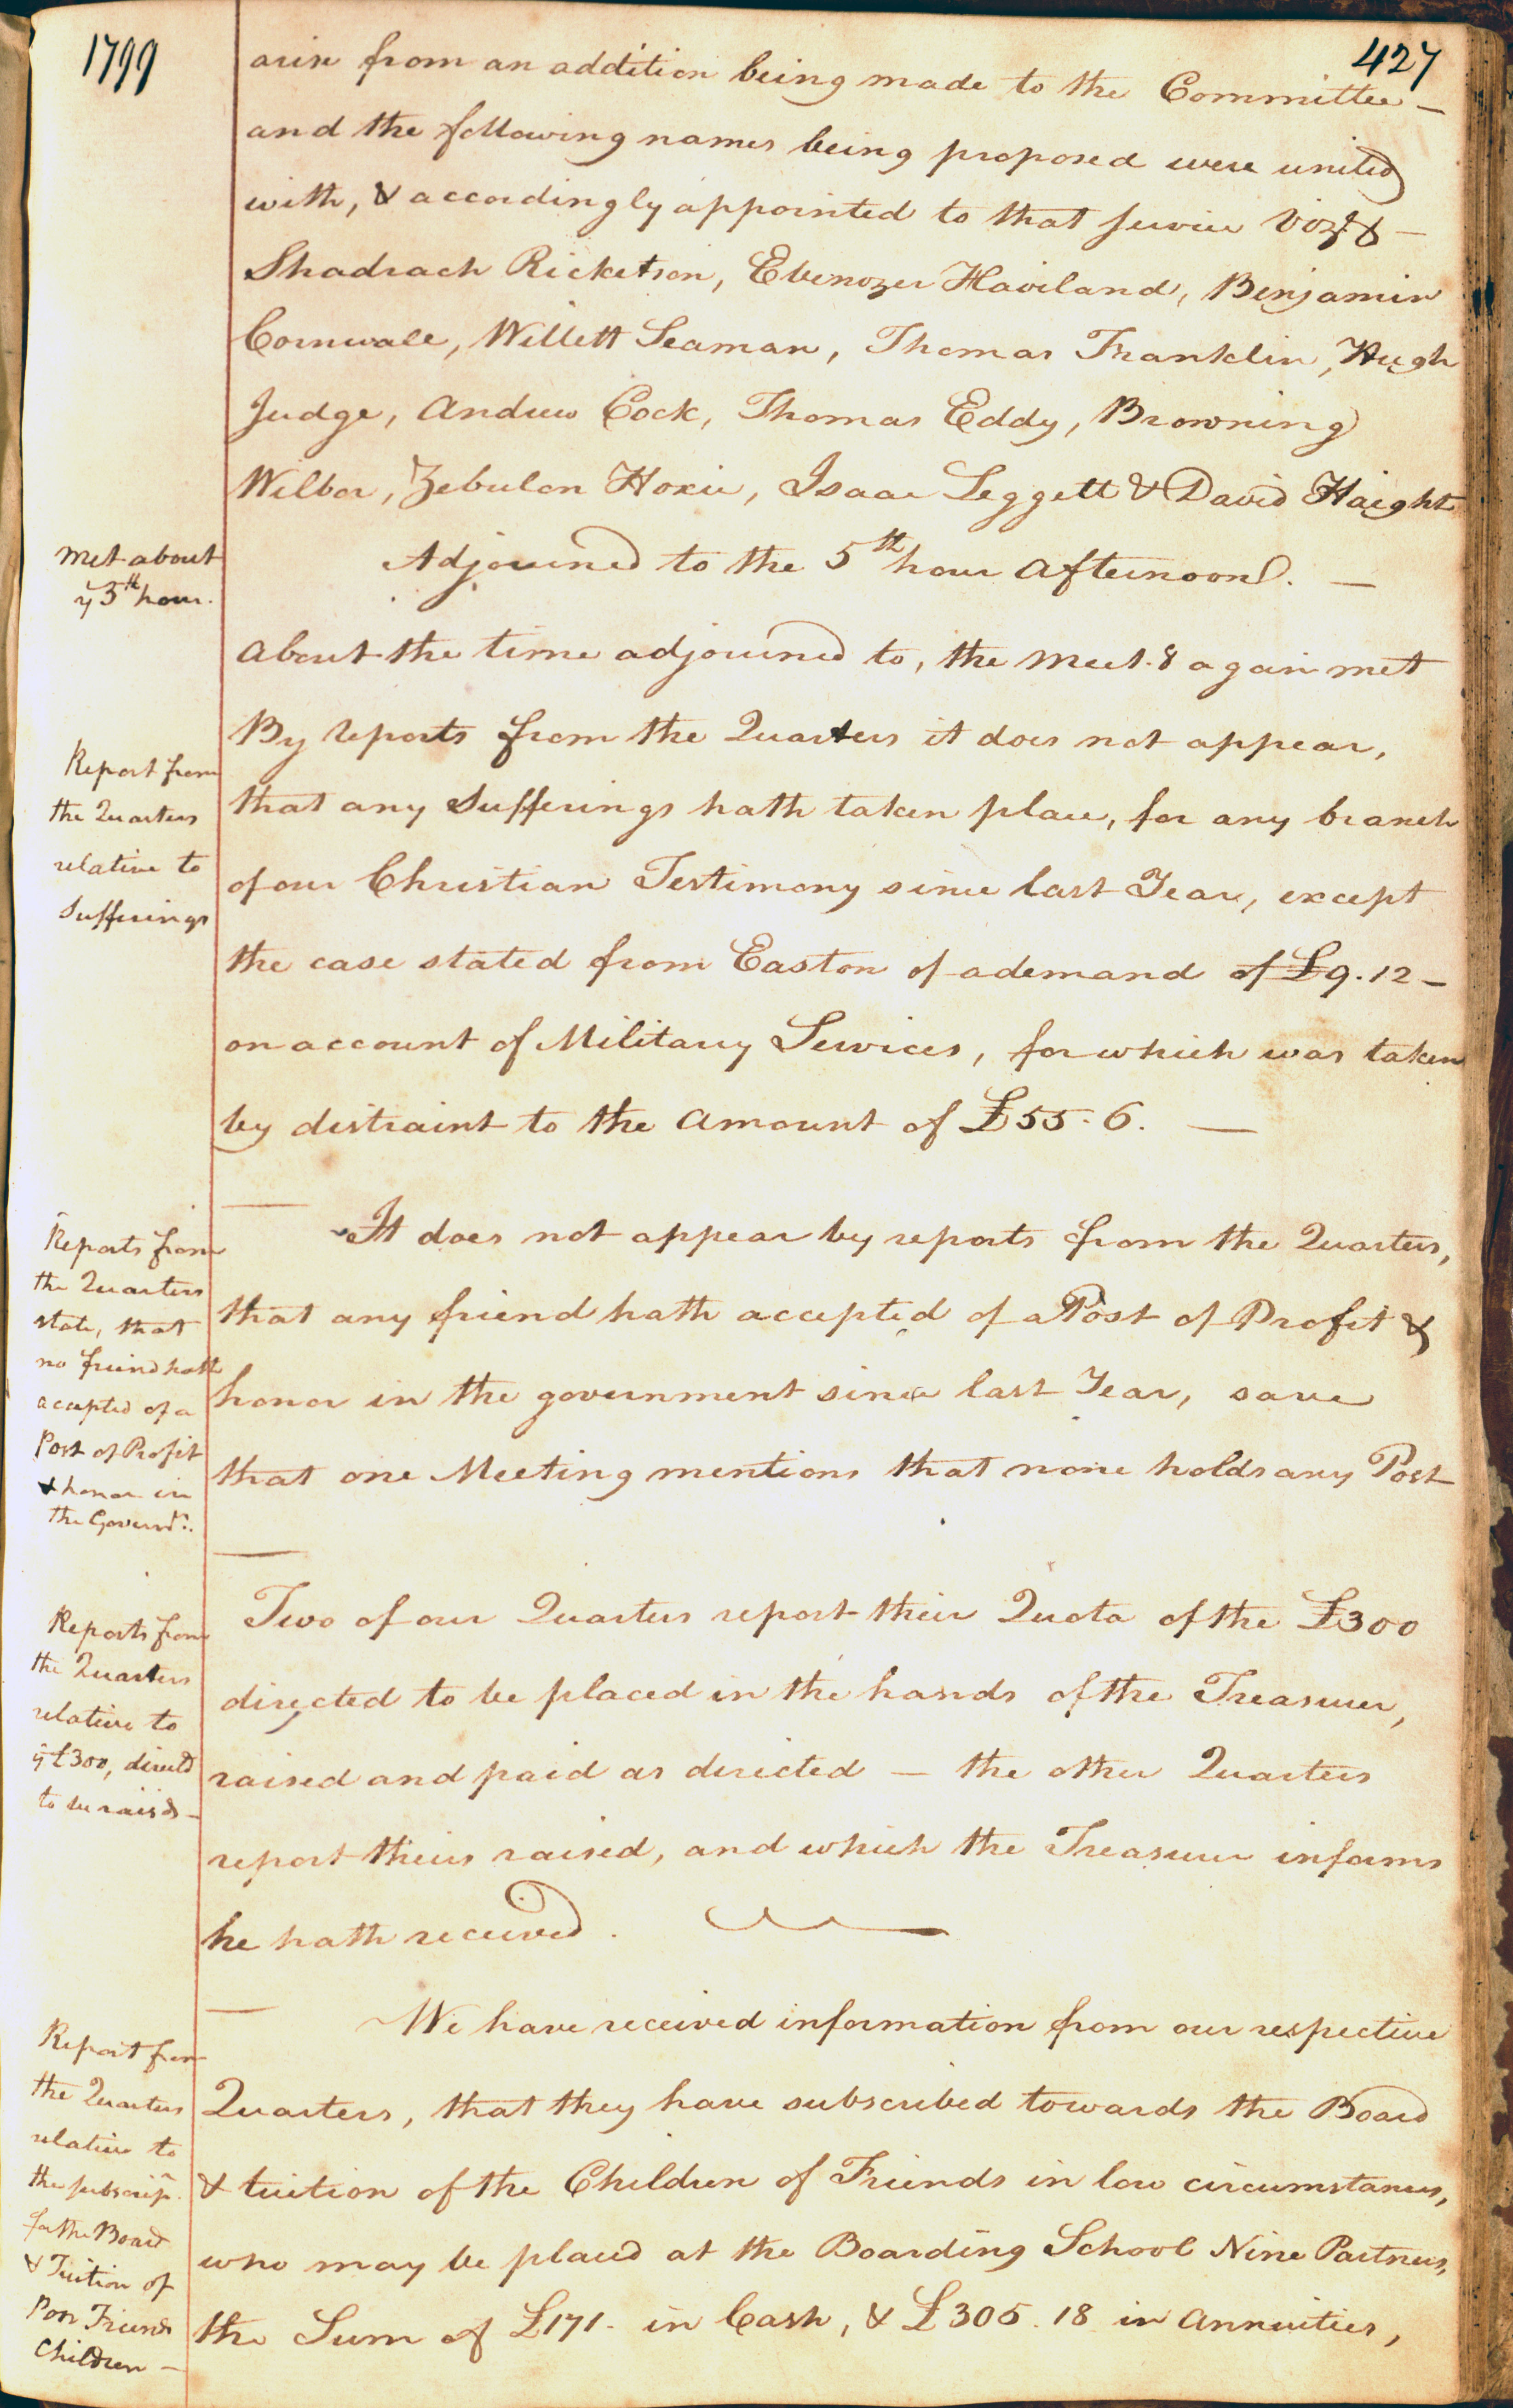 1799
427
arise from an addition being made to the Committee —
and the following names being proposed were united
with, & accordingly appointed to that service Vizt —
Shadrach Ricketson, Ebenezer Haviland, Benjamin
Cornwall, Willett Seaman, Thomas Franklin, Hugh
Judge, Andrew Cock, Thomas Eddy, Browning
Wilbor, Zebulon Hoxie, Isaac Leggett & David Haight
Adjourned to the 5th hour afternoon. —
met about
ye 5th hour.
About the time adjourned to, the Meetg again met
By reports from the Quarters it does not appear,
that any Sufferings hath taken place, for any branch
of our Christian Testimony since last Year, except
the case stated from Easton of a demand of £9.12 —
on account of Military Services, for which was taken
by distraint to the amount of £55.6. —
Report from
the Quarters
relative to
Sufferings
It does not appear by reports from the Quarters,
that any friend hath accepted of a Post of Profit &
honor in the government since last Year, save
that one Meeting mentions that none holds any Post
Reports from
the Quarters
state, that
no friend hath
accepted of a
Post of Profit
& honor in
the Governt.
Two of our Quarters report their Quota of the £300
directed to be placed in the hands of the Treasurer,
raised and paid as directed — the other Quarters
report theirs raised, and which the Treasurer informs
he hath received.
Reports from
the Quarters
relative to
ye £300, directd
to be raisd —
We have received information from our respective
Quarters, that they have subscribed towards the Board
& tuition of the Children of Friends in low circumstances,
who may be placed at the Boarding School Nine Partners,
the Sum of £171. in Cash, & £305.18 in annuities,
Report from
the Quarters
relative to
the subscrip.
for the Board
& Tuition of
Poor Friends
Children —